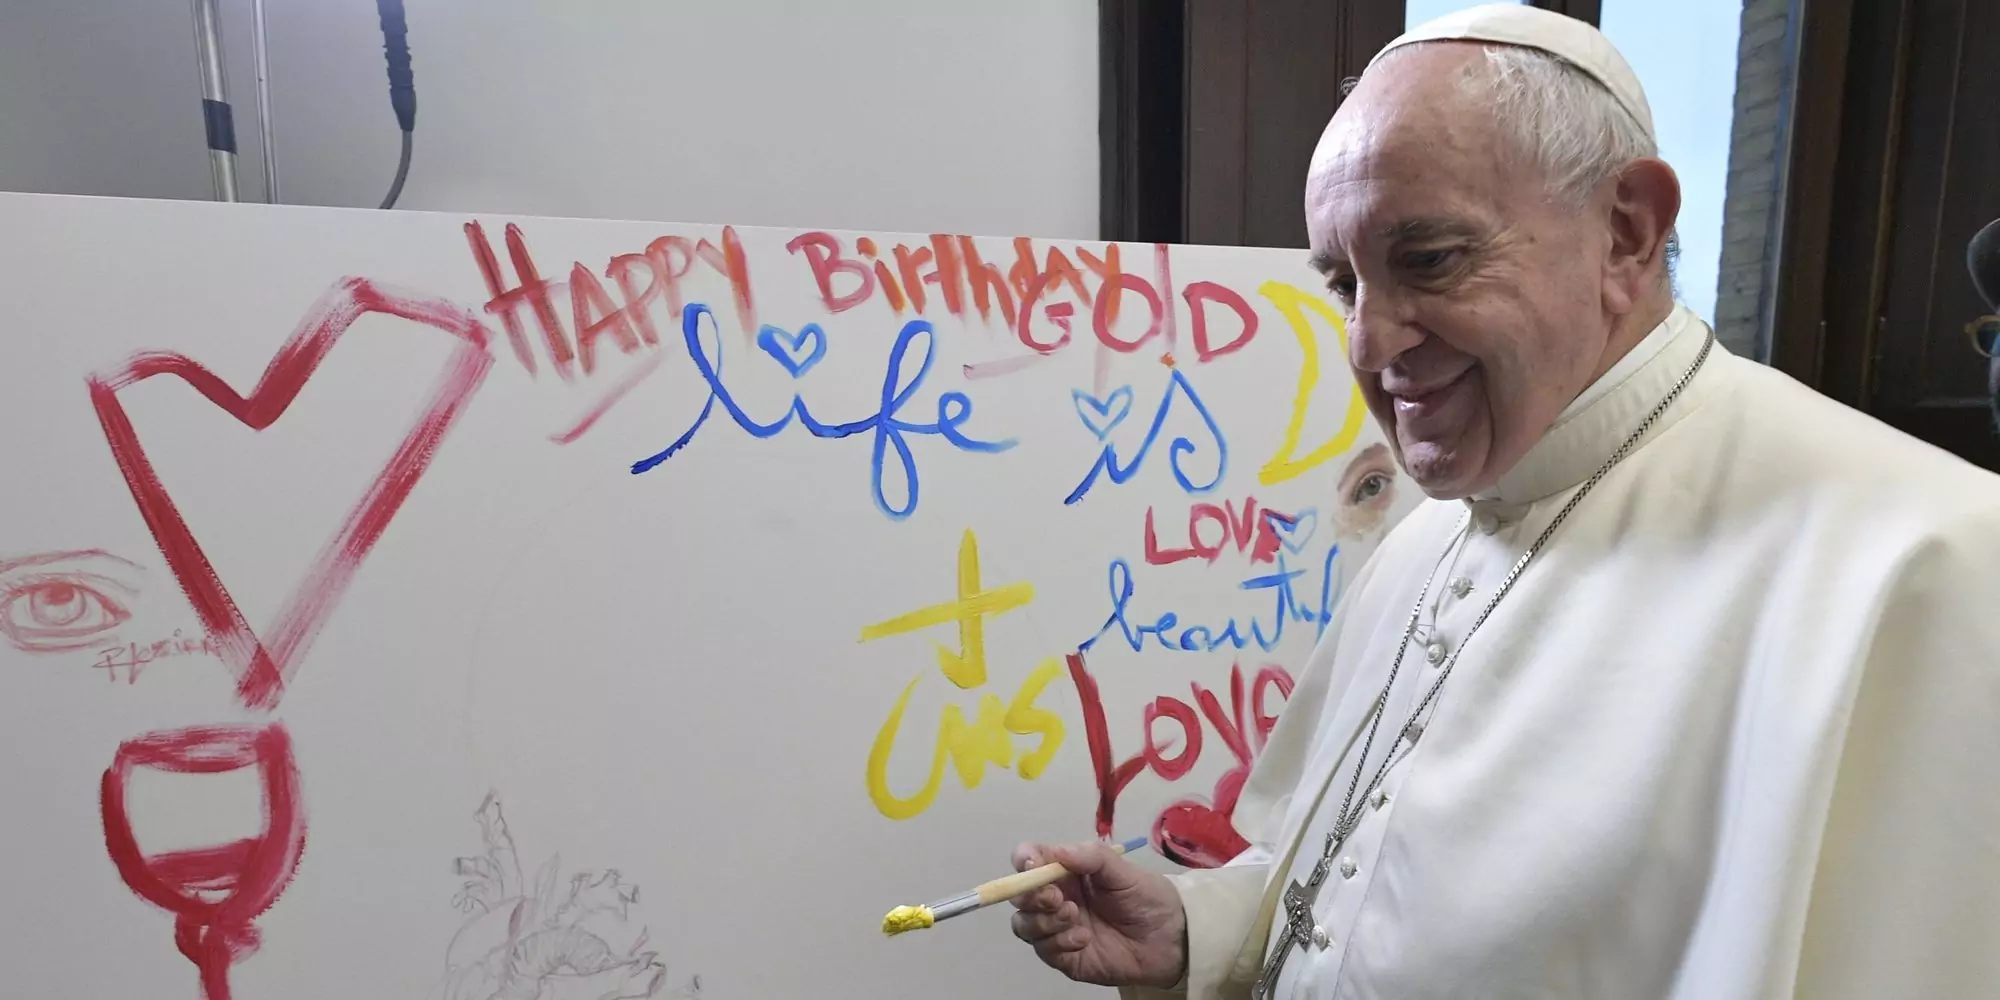 Happy Birthday
GOLD
life is
LOVE
beautiful
Love